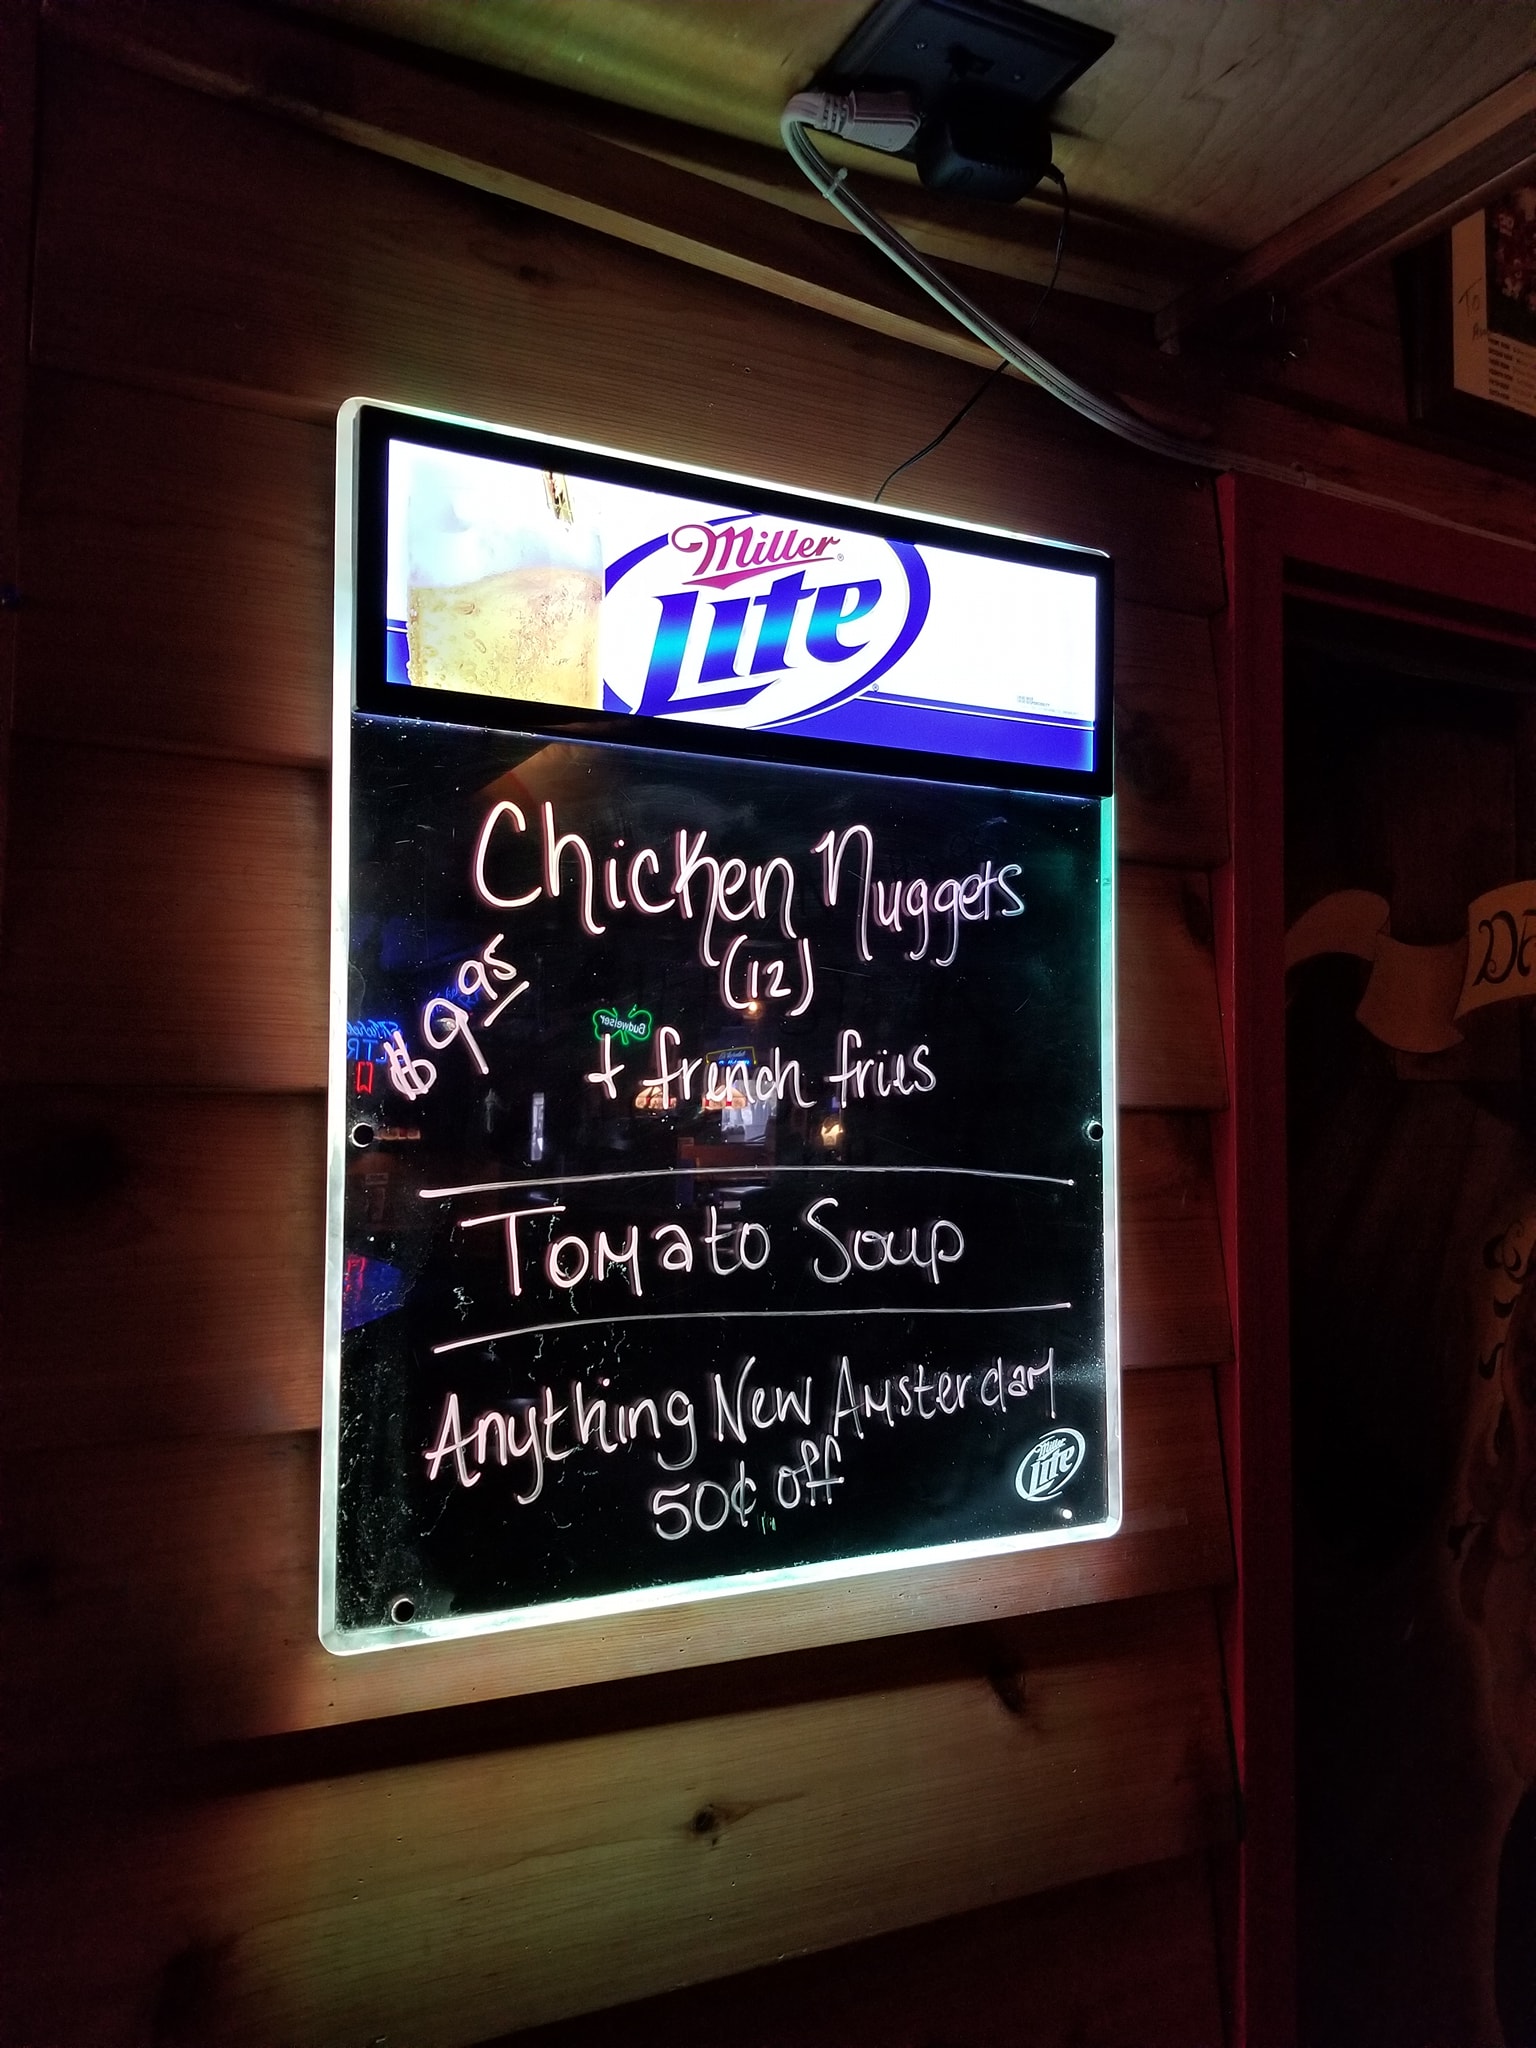 Miller
Lite
Chicken Nuggets
(12)
$9.95
+ french fries
Tomato Soup
Anything New Amsterdam
50¢ off
Miller
Lite
Budweiser
To